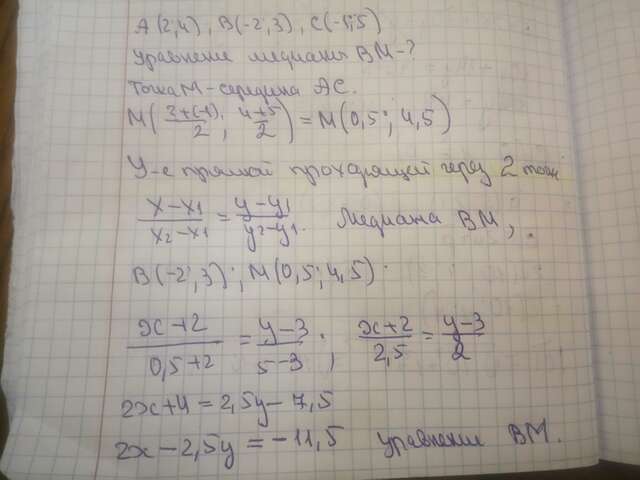 A(2,4), B(-2,3), C(-1;5)
Уравнение медианы BM-?
Точка M - середина AC.
M(\frac{2+(-1)}{2}; \frac{4+5}{2}) = M(0,5; 4,5)
У-е прямой проходящей через 2 точки
\frac{x-x_1}{x_2-x_1} = \frac{y-y_1}{y_2-y_1}. Медиана BM,
B(-2;3); M(0,5; 4,5).
\frac{x+2}{0,5+2} = \frac{y-3}{5-3}; \frac{x+2}{2,5} = \frac{y-3}{2}
2x+4 = 2,5y-7,5
2x-2,5y = -11,5 уравнение BM.